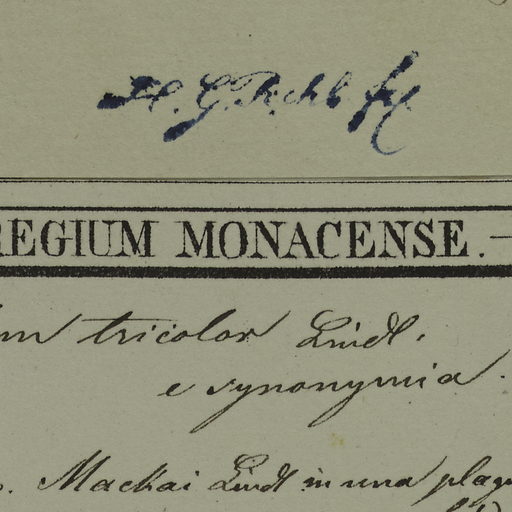 H. G. Rchb fil.
REGIUM MONACENSE.
um tricolor Lindl.
e synonymia.
Mackai Lindl in una plag